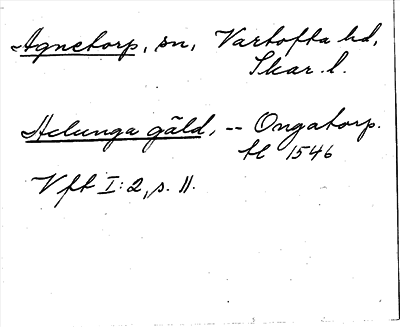 Agnetorp, sn, Vartofta hd,
Skar. l.
Helunga gäld, -- Ongatorp.
tl 1546
Vft I: 2, s. 11.